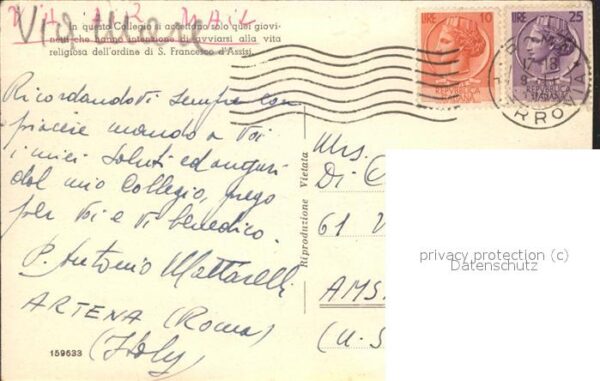 VIA AIR MAIL
Via aerea
In questo Collegio si accettano solo quei giovi-
netti che hanno intenzione di avviarsi alla vita
religiosa dell'ordine di S. Francesco d'Assisi
LIRE 10
LIRE 25
REPVBBLICA
ITALIANA
REPVBBLICA
ITALIANA
17-18
FERROVIA
Ricordandovi sempre con
piacere mando a Voi
i miei saluti ed auguri
dal mio Collegio, prego
per Voi e Vi benedico.
P. Antonio Mattarelli
ARTENA (Roma)
(Italy)
159633
Riproduzione Vietata
Mrs.
Di C
61 V
AMS
(U.S
privacy protection (c)
Datenschutz